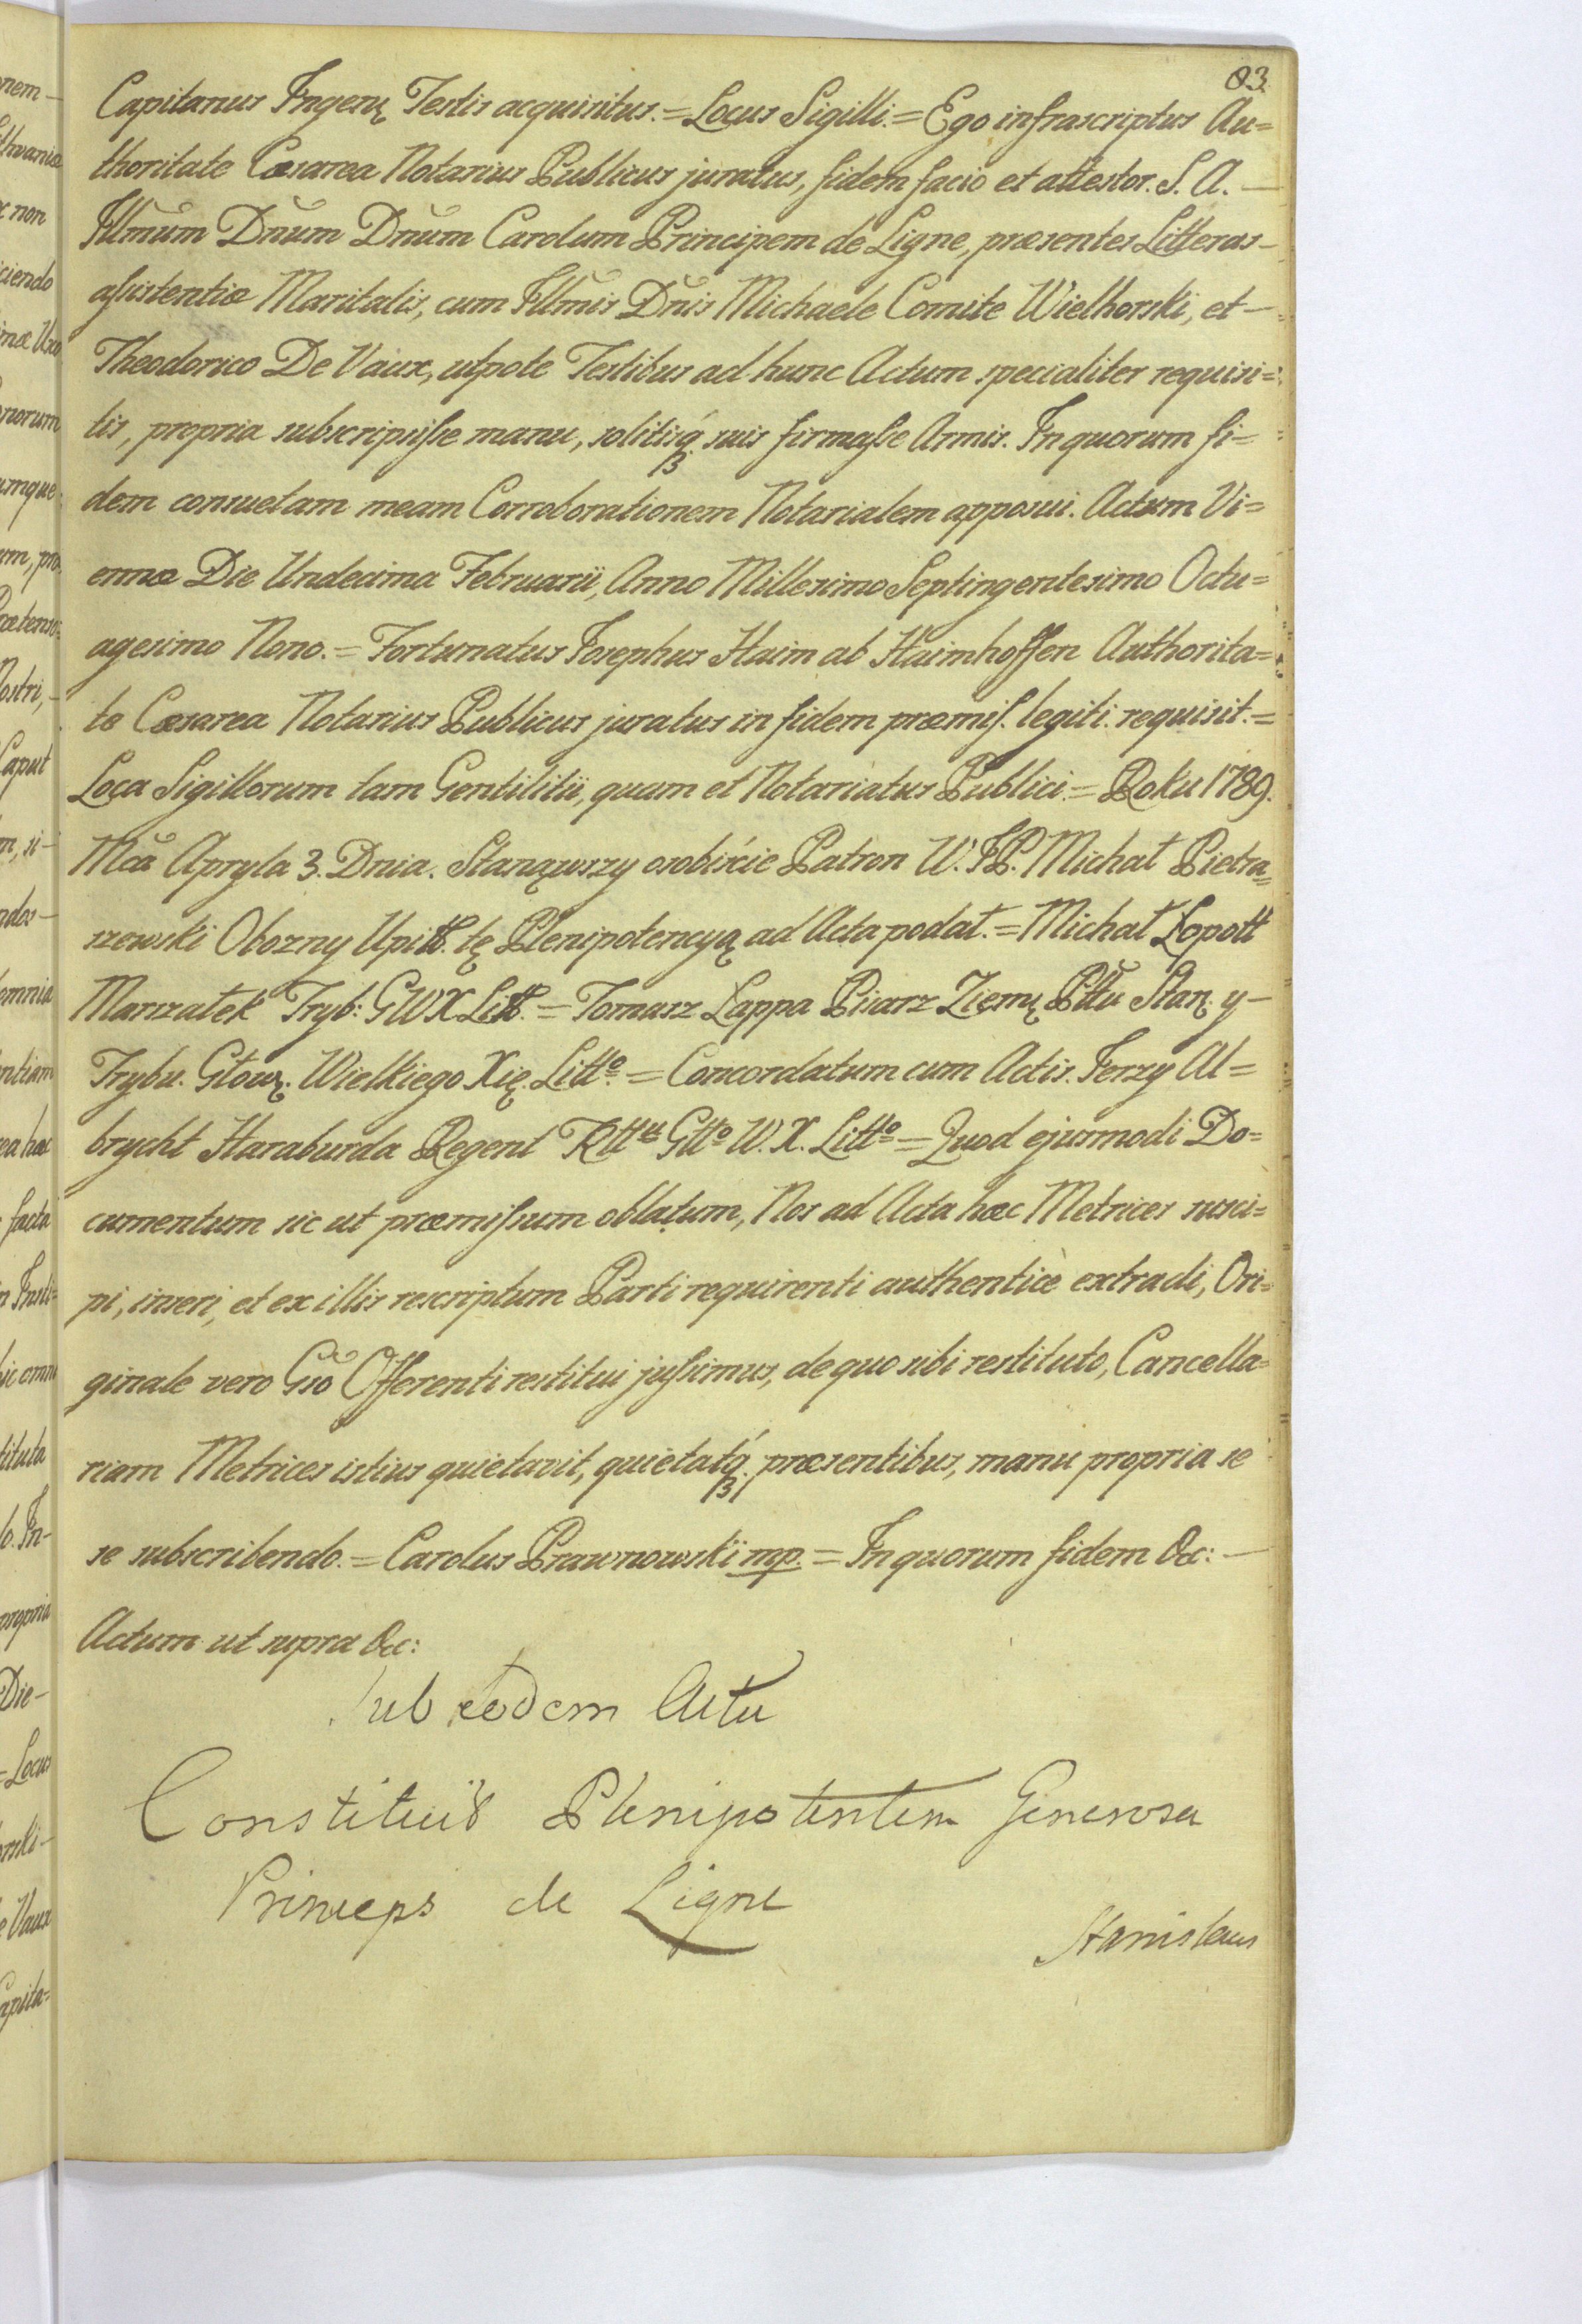 83.
Capitanus Ingenų Testis acquisitus. = Locus Sigilli. = Ego infrascriptus Au=
thoritate Cæsarea Notarius Publicus juratus, fidem facio et attestor. S. A. —
Illmũm Dnũm Dnũm Carolum Principem de Ligne, præsentes Litteras —
assistentiæ Maritalis, cum Illmĩs Dnĩs Michaele Comite Wielhorski, et —
Theodorico De Vaux, utpote Testibus ad hunc Actum specialiter requisi=
tis, propria subscripsisse manu, solitisq́ʒ suis firmasse Armis. In quorum fi=
dem consuetam meam Corroborationem Notarialem apposui. Actum Vi=
ennæ Die Undecima Februarii, Anno Millesimo Septingentesimo Octu=
agesimo Nono. = Fortunatus Josephus Haim ab Haimhoffen Authorita=
te Cæsarea Notarius Publicus juratus in fidem præmis. legiti. requisit. =
Loca Sigillorum tam Gentilitii, quam et Notariatus Publici. = Roku 1789.
Mcã Apryla 3. Dnia. Stanąwszy osobiście Patron W. JP. Michał Pietra=
szewski Obozny Upitt. tę Plenipotencyą ad Acta podał. = Michał Łopott
Marszałek Tryb: GWXLitt. = Tomasz Łappa Pisarz Ziemų Pttũ Słoną. y —
Trybu. Głową. Wielkiego Xię. Litto. = Concordatum cum Actis. Jerzy Al=
brycht Haraburda Regent Kttu Gtto W. X. Litto = Quod ejusmodi Do=
cumentum sic ut præmissum oblatum, Nos ad Acta hæc Metrices susci=
pi, inseri, et ex illis rescriptum Parti requirenti authenticè extradi, Ori=
ginale vero Gsõ Offerenti restitui jussimus, de quo sibi restituto, Cancella=
riam Metrices istius quietavit, quietatq́ʒ præsentibus, manu propria se
se subscribendo. = Carolus Prawnowskï mp. = In quorum fidem &c: —
Actum ut supra &c:
Sub eodem Actu
Constituit Plenipotentem Generosa
Princeps de Ligne
Stanislaus